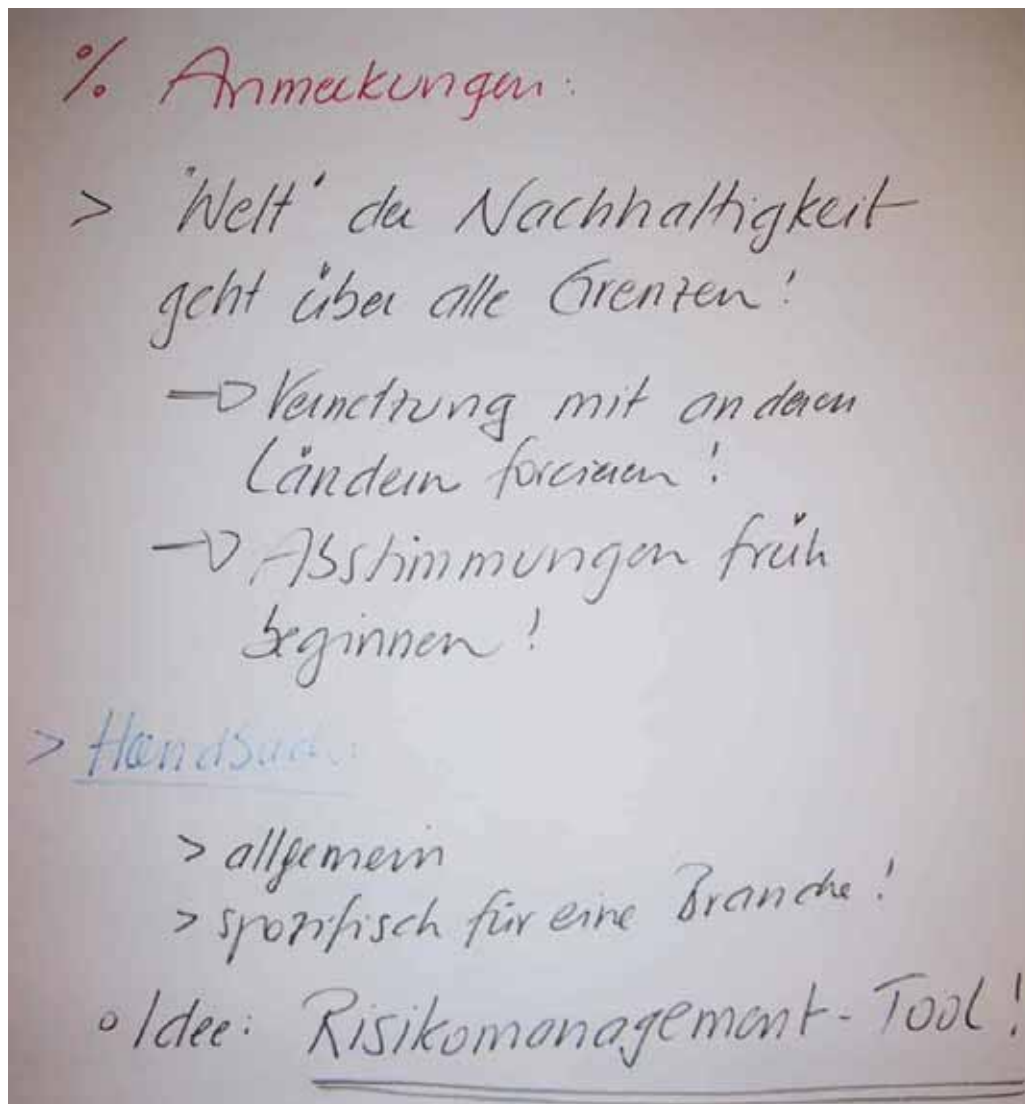 % Anmerkungen:
> "Welt" der Nachhaltigkeit
geht über alle Grenzen!
→ Vernetzung mit anderen
Ländern forcieren!
→ Abstimmungen früh
beginnen!
> Handbuch:
> allgemein
> spezifisch für eine Branche!
o Idee: Risikomanagement-Tool!